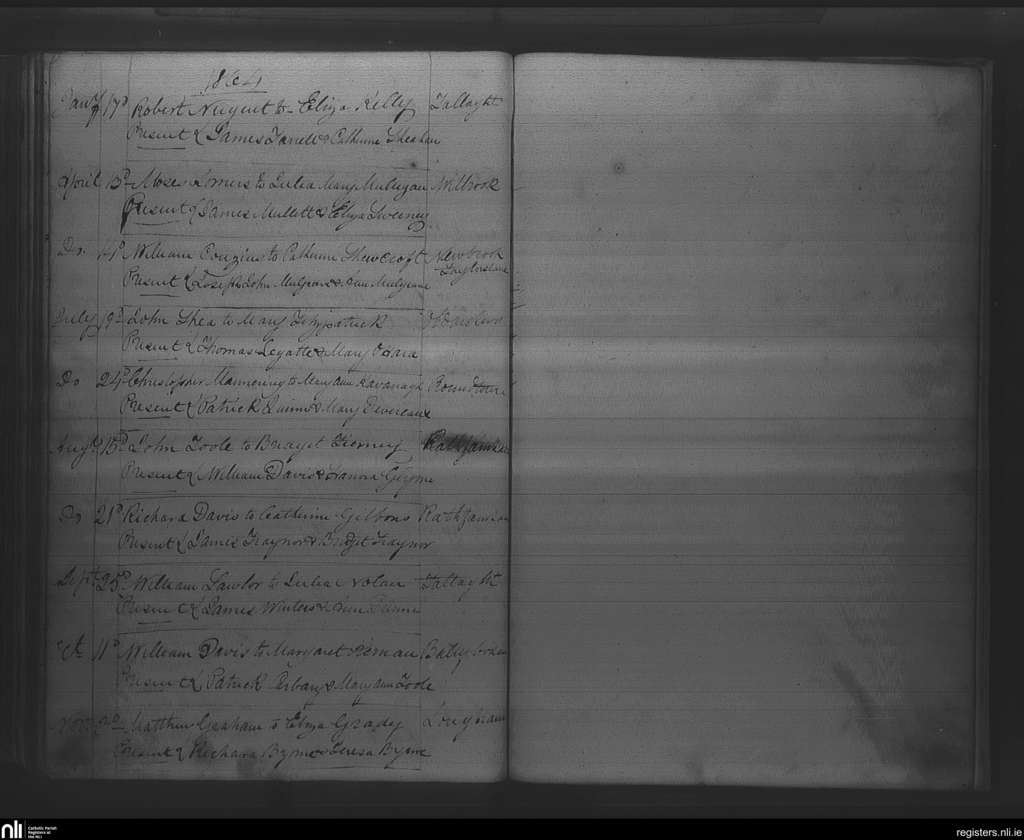 1864
Jany 17d Robert Nugent to Eliza Kelly Tallaght
Present James Farrell & Catherine Sheahan
April 13d Moses to Julia Mary Mulligan Willbrook
Present James Mullett & Eliza Sweeney
Do. William Couzins to Catherine Shewcroft Newbrook
Taylorslane
Present Joseph John Mulgrave & Ann Mulgrave
July 19d John Shea to Mary Fitzpatrick
Present Thomas Legatte & Mary O'Hara
Do 24d Christopher Mannering to Mary Ann Kavanagh Roundtown
Present Patrick Quinn & Mary Devereaux
Augt 15d John Toole to Bridget Tierney Rathfarnham
Present William Davis &
Do 21d Richard Davis to Catherine Gibbons Rathfarnham
Present James Traynor & Bridget Traynor
Sept 25d William Lawlor to Julia Nolan Tallaght
Present James Winters & Ann
Oct 11d William Davis to Margaret Kernan Ballyboden
Present Patrick & Mary Ann Toole
Novr Matthew Graham to Eliza Grady
Present Richard Byrne & Teresa Byrne
nli Catholic Parish
Registers at
the NLI
registers.nli.ie